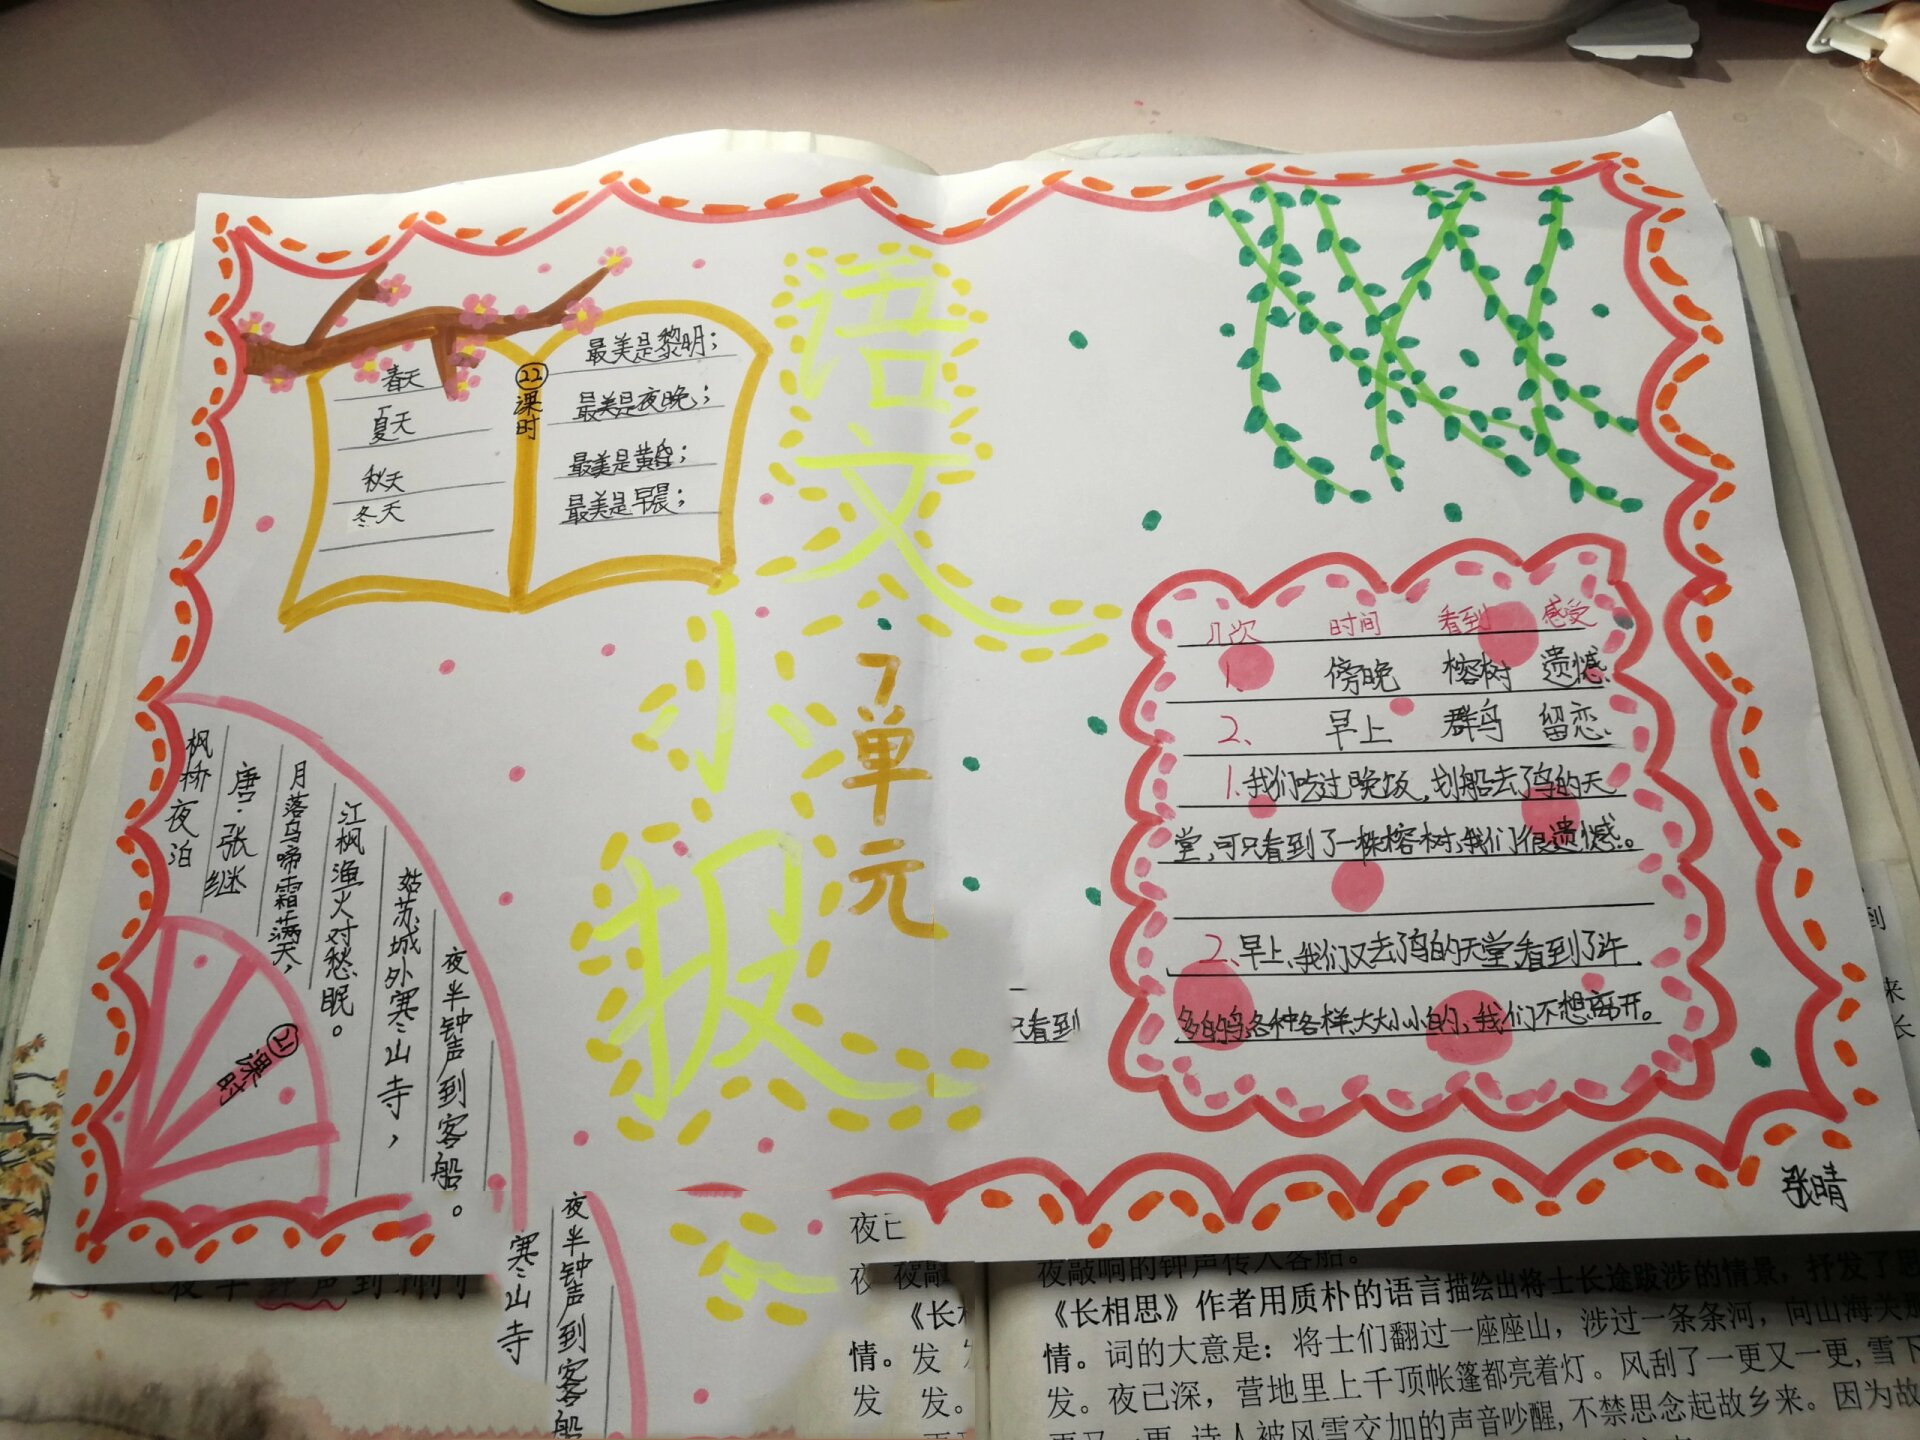 语文
小报
7单元
22
课时
春天
夏天
秋天
冬天
最美是黎明；
最美是夜晚；
最美是黄昏；
最美是早晨；
枫桥夜泊
唐·张继
月落乌啼霜满天，
江枫渔火对愁眠。
姑苏城外寒山寺，
夜半钟声到客船。
21
课时
几次 时间 看到 感受
1、 傍晚 榕树 遗憾
2、 早上 群鸟 留恋
1、我们吃过晚饭，划船去了鸟的天
堂，可只看到了一株榕树，我们很遗憾。
2、早上、我们又去了鸟的天堂看到了许
多的鸟各种各样、大大小小的，我们不想离开。
张晴
只看到
寒山寺
夜半钟声到客船
夜敲响的钟声传入客船。
《长相思》作者用质朴的语言描绘出将士长途跋涉的情景，抒发了思
情。词的大意是：将士们翻过一座座山，涉过一条条河，向山海关
发。夜已深，营地里上千顶帐篷都亮着灯。风刮了一更又一更，雪下
诗人被风雪交加的声音吵醒，不禁思念起故乡来。因为故
夜
夜敲
《长相
情。发
发 发。
到
来
长